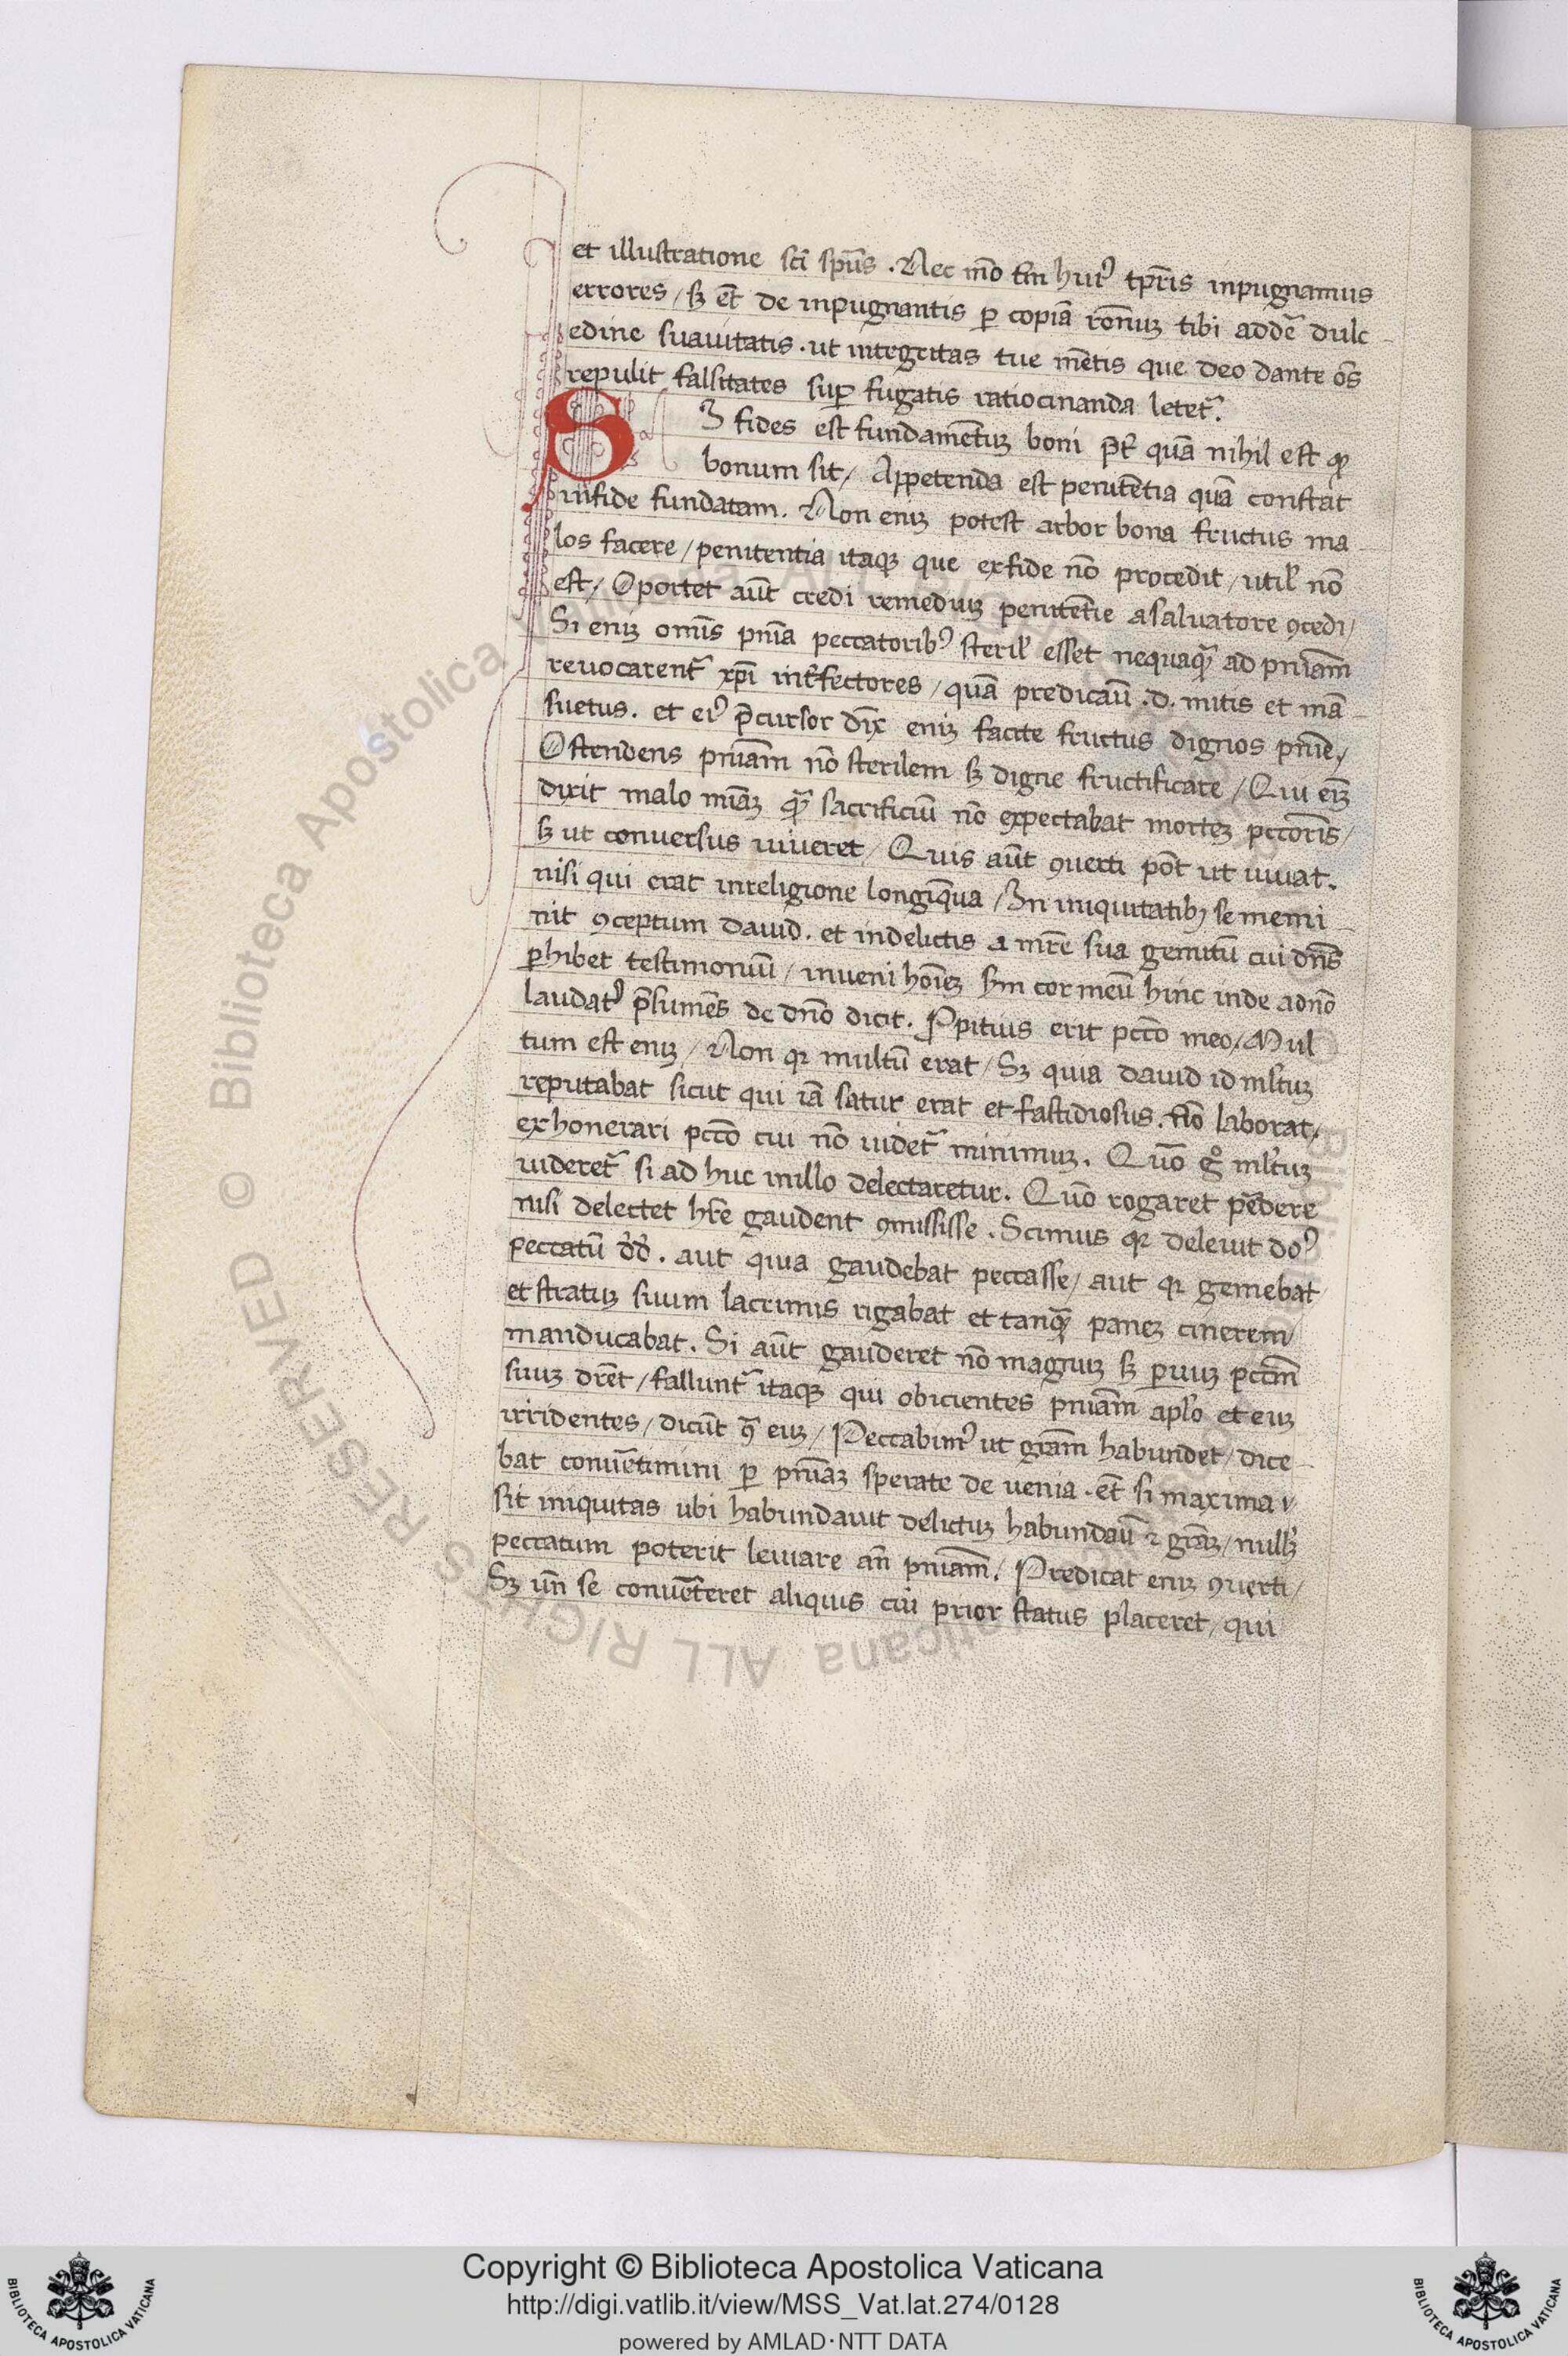 et illustratione sc̄i sp̄us . Nec mō tm̄ huiꝰ tp̄ris inpugnamus
errores / sꝫ et̄ de inpugnantis ꝑ copiā ron̄uꝫ tibi addē dulc-
edine suauitatis . ut integritas tue mētis que deo dante ōs
repulit falsitates suꝑ fugatis ratiocinanda letet᷑.
Sꝫ fides est fundamētuꝫ boni p̄t᷑ quā nihil est qđ
bonum sit / Appetenda est penitētia quā constat
infide fundatam . Non eniꝫ potest arbor bona fructus ma-
los facere / penitentia itaqꝫ que exfide nō procedit / util' nō
est / Oportet aūt credi remediuꝫ penitētie asaluatore ꝯcedi /
Si eniꝫ om̄is pnīa peccatoribꝰ steril' esset nequaqᷓ ad pniam̄
reuocarent᷑ xp̄i int᷑fectores / quā predicaū .d. mitis et mā-
suetus . et eiꝰ p̄cursor dix̄ eniꝫ facite fructus dignos pnīe /
Ostendens pniam̄ nō sterilem sꝫ digne fructificare / Qui eīꝫ
dixit malo mīaꝫ qᷓ sacrificiū nō expectabat morteꝫ pcc̄oris /
sꝫ ut conuersus uiueret / Quis aūt ꝯuerti pōt ut uiuat .
nisi qui erat inreligione longiq̄ua / In iniquitatibꝫ se memi-
nit ꝯceptum dauid . et indelictis a mr̄e sua genitū cui dn̄s
ꝑhibet testimoniū / inueni hoīeꝫ sꝫm cor meū hinc inde adnō
laudatꝰ p̄sumēs de dn̄o dicit . Ꝓpitius erit pcc̄o meo / Mul
tum est eniꝫ / Non qꝛ multū erat / Sꝫ quia dauid id ml̄tuꝫ
reputabat sicut qui iā satur erat et fastidiosus . nō laborat /
exhonerari pcc̄o cui nō uidet᷑ minimuꝫ . Quō gͦ ml̄tuꝫ
uideret᷑ si ad huc inillo delectaretur . Quō rogaret p̄edere
nisi delectet hr̄e gaudent ꝯmisisse . Scimus qꝛ deleuit doꝰ
peccatū đđ . aut quia gaudebat peccasse / aut qꝛ gemebat /
et stratuꝫ suum lacrimis rigabat et tanqᷓ paneꝫ cinerem
manducabat . Si aūt gauderet nō magnuꝫ sꝫ ꝑuuꝫ pccm̄
suuꝫ dr̄et / fallunt᷑ itaqꝫ qui obicientes pniam̄ apl̄o et euꝫ
irridentes / dicūt qᷓ euꝫ / Peccabimꝰ ut grām habundet / dice-
bat conuētimini ꝑ pnīaꝫ sperate de uenia . et̄ si maxima
sit iniquitas ubi habundauit delictuꝫ habundaū ⁊ grāꝫ / null'
peccatum poterit leuiare an̄ pniam̄ / Predicat eniꝫ ꝯuerti /
Sꝫ un̄ se conuēteret aliquis cui prior status placeret / qui
Copyright © Biblioteca Apostolica Vaticana
http://digi.vatlib.it/view/MSS_Vat.lat.274/0128
powered by AMLAD·NTT DATA